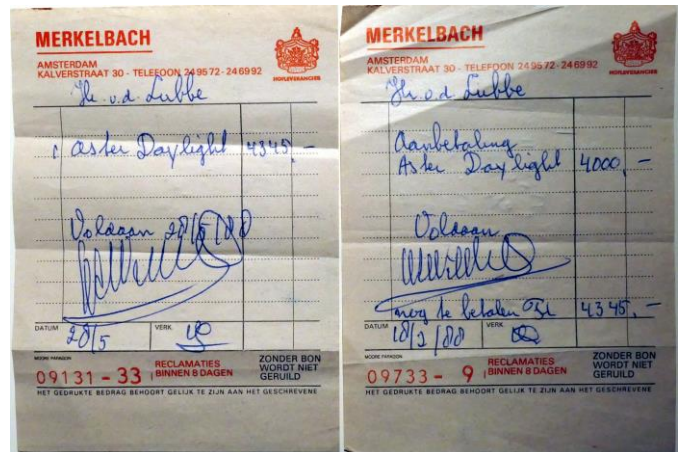 MERKELBACH
AMSTERDAM
KALVERSTRAAT 30 - TELEFOON 249572-246992
HOFLEVERANCIER
Hr. v.d. Lubbe
1 Aster Daylight 4345,-
Voldaan 28/5/88
DATUM
28/5
VERK
MOORE PARAGON
09131-33
RECLAMATIES
BINNEN 8 DAGEN
ZONDER BON
WORDT NIET
GERUILD
HET GEDRUKTE BEDRAG BEHOORT GELIJK TE ZIJN AAN HET GESCHREVENE
MERKELBACH
AMSTERDAM
KALVERSTRAAT 30 - TELEFOON 249572-246992
HOFLEVERANCIER
Hr. v.d. Lubbe
Aanbetaling
Aster Daylight 4000,-
Voldaan
nog te betalen 4345,-
DATUM
VERK
MOORE PARAGON
09733-9
RECLAMATIES
BINNEN 8 DAGEN
ZONDER BON
WORDT NIET
GERUILD
HET GEDRUKTE BEDRAG BEHOORT GELIJK TE ZIJN AAN HET GESCHREVENE